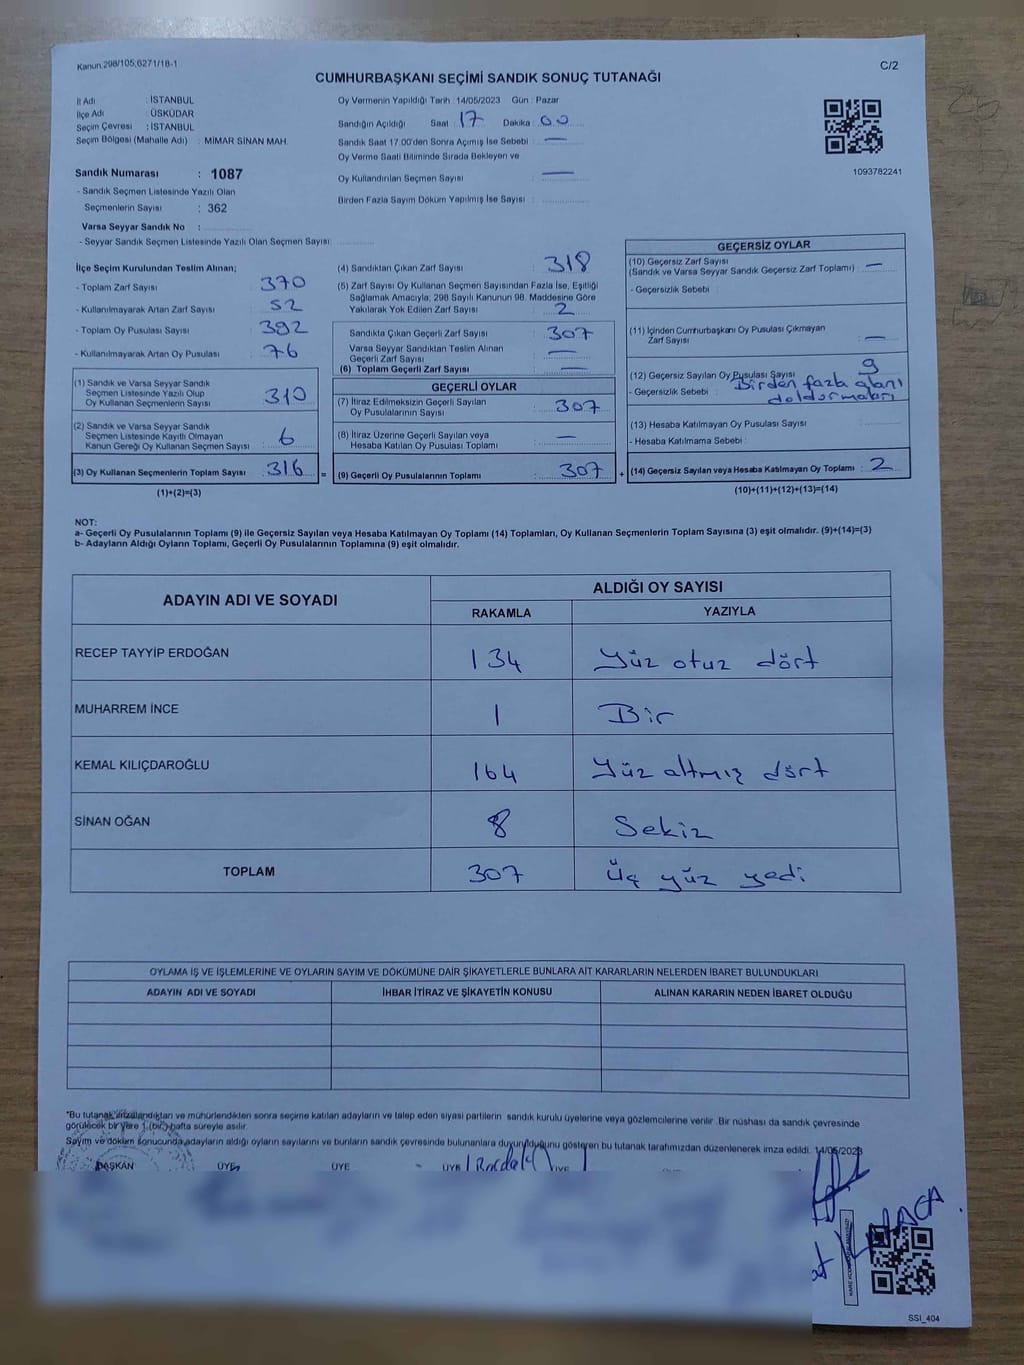 Kanun.298/105,6271/18-1
C/2
CUMHURBAŞKANI SEÇİMİ SANDIK SONUÇ TUTANAĞI
İl Adı : İSTANBUL
İlçe Adı : ÜSKÜDAR
Seçim Çevresi : İSTANBUL
Seçim Bölgesi (Mahalle Adı) : MİMAR SİNAN MAH.
Sandık Numarası : 1087
- Sandık Seçmen Listesinde Yazılı Olan
Seçmenlerin Sayısı : 362
Varsa Seyyar Sandık No :
- Seyyar Sandık Seçmen Listesinde Yazılı Olan Seçmen Sayısı:
Oy Vermenin Yapıldığı Tarih :14/05/2023 Gün : Pazar
Sandığın Açıldığı Saat : 17 Dakika : 00
Sandık Saat 17.00'den Sonra Açımış İse Sebebi : —
Oy Verme Saati Bitiminde Sırada Bekleyen ve
Oy Kullandırılan Seçmen Sayısı : —
Birden Fazla Sayım Döküm Yapılmış İse Sayısı :
1093782241
İlçe Seçim Kurulundan Teslim Alınan;
- Toplam Zarf Sayısı : 370
- Kullanılmayarak Artan Zarf Sayısı : 52
- Toplam Oy Pusulası Sayısı : 392
- Kullanılmayarak Artan Oy Pusulası : 76
(1) Sandık ve Varsa Seyyar Sandık
Seçmen Listesinde Yazılı Olup
Oy Kullanan Seçmenlerin Sayısı : 310
(2) Sandık ve Varsa Seyyar Sandık
Seçmen Listesinde Kayıtlı Olmayan
Kanun Gereği Oy Kullanan Seçmen Sayısı : 6
(3) Oy Kullanan Seçmenlerin Toplam Sayısı : 316 =
(1)+(2)=(3)
(4) Sandıktan Çıkan Zarf Sayısı : 318
(5) Zarf Sayısı Oy Kullanan Seçmen Sayısından Fazla İse, Eşitliği
Sağlamak Amacıyla; 298 Sayılı Kanunun 98. Maddesine Göre
Yakılarak Yok Edilen Zarf Sayısı : 2
Sandıkta Çıkan Geçerli Zarf Sayısı : 307
Varsa Seyyar Sandıktan Teslim Alınan
Geçerli Zarf Sayısı : —
(6) Toplam Geçerli Zarf Sayısı : —
GEÇERLİ OYLAR
(7) İtiraz Edilmeksizin Geçerli Sayılan
Oy Pusulalarının Sayısı : 307
(8) İtiraz Üzerine Geçerli Sayılan veya
Hesaba Katılan Oy Pusulası Toplamı : —
(9) Geçerli Oy Pusulalarının Toplamı : 307 +
GEÇERSİZ OYLAR
(10) Geçersiz Zarf Sayısı
(Sandık ve Varsa Seyyar Sandık Geçersiz Zarf Toplamı) : —
- Geçersizlik Sebebi :
(11) İçinden Cumhurbaşkanı Oy Pusulası Çıkmayan
Zarf Sayısı : —
(12) Geçersiz Sayılan Oy Pusulası Sayısı : 9
- Geçersizlik Sebebi : Birden fazla alanı
doldurmaları
(13) Hesaba Katılmayan Oy Pusulası Sayısı :
- Hesaba Katılmama Sebebi :
(14) Geçersiz Sayılan veya Hesaba Katılmayan Oy Toplamı : 2
(10)+(11)+(12)+(13)=(14)
NOT:
a- Geçerli Oy Pusulalarının Toplamı (9) ile Geçersiz Sayılan veya Hesaba Katılmayan Oy Toplamı (14) Toplamları, Oy Kullanan Seçmenlerin Toplam Sayısına (3) eşit olmalıdır. (9)+(14)=(3)
b- Adayların Aldığı Oyların Toplamı, Geçerli Oy Pusulalarının Toplamına (9) eşit olmalıdır.
ADAYIN ADI VE SOYADI
ALDIĞI OY SAYISI
RAKAMLA YAZIYLA
RECEP TAYYİP ERDOĞAN 134 Yüz otuz dört
MUHARREM İNCE 1 Bir
KEMAL KILIÇDAROĞLU 164 Yüz altmış dört
SİNAN OĞAN 8 Sekiz
TOPLAM 307 Üç yüz yedi
OYLAMA İŞ VE İŞLEMLERİNE VE OYLARIN SAYIM VE DÖKÜMÜNE DAİR ŞİKAYETLERLE BUNLARA AİT KARARLARIN NELERDEN İBARET BULUNDUKLARI
ADAYIN ADI VE SOYADI İHBAR İTİRAZ VE ŞİKAYETİN KONUSU ALINAN KARARIN NEDEN İBARET OLDUĞU
"Bu tutanak imzalandıktan ve mühürlendikten sonra seçime katılan adayların ve talep eden siyasi partilerin sandık kurulu üyelerine veya gözlemcilerine verilir. Bir nüshası da sandık çevresinde
görülecek bir yere 1 (bir) hafta süreyle asılır.
Sayım ve döküm sonucunda adayların aldığı oyların sayılarını ve bunların sandık çevresinde bulunanlara duyurulduğunu gösteren bu tutanak tarafımızdan düzenlenerek imza edildi. 14/05/2023
BAŞKAN ÜYE ÜYE ÜYE ÜYE
SSI_404